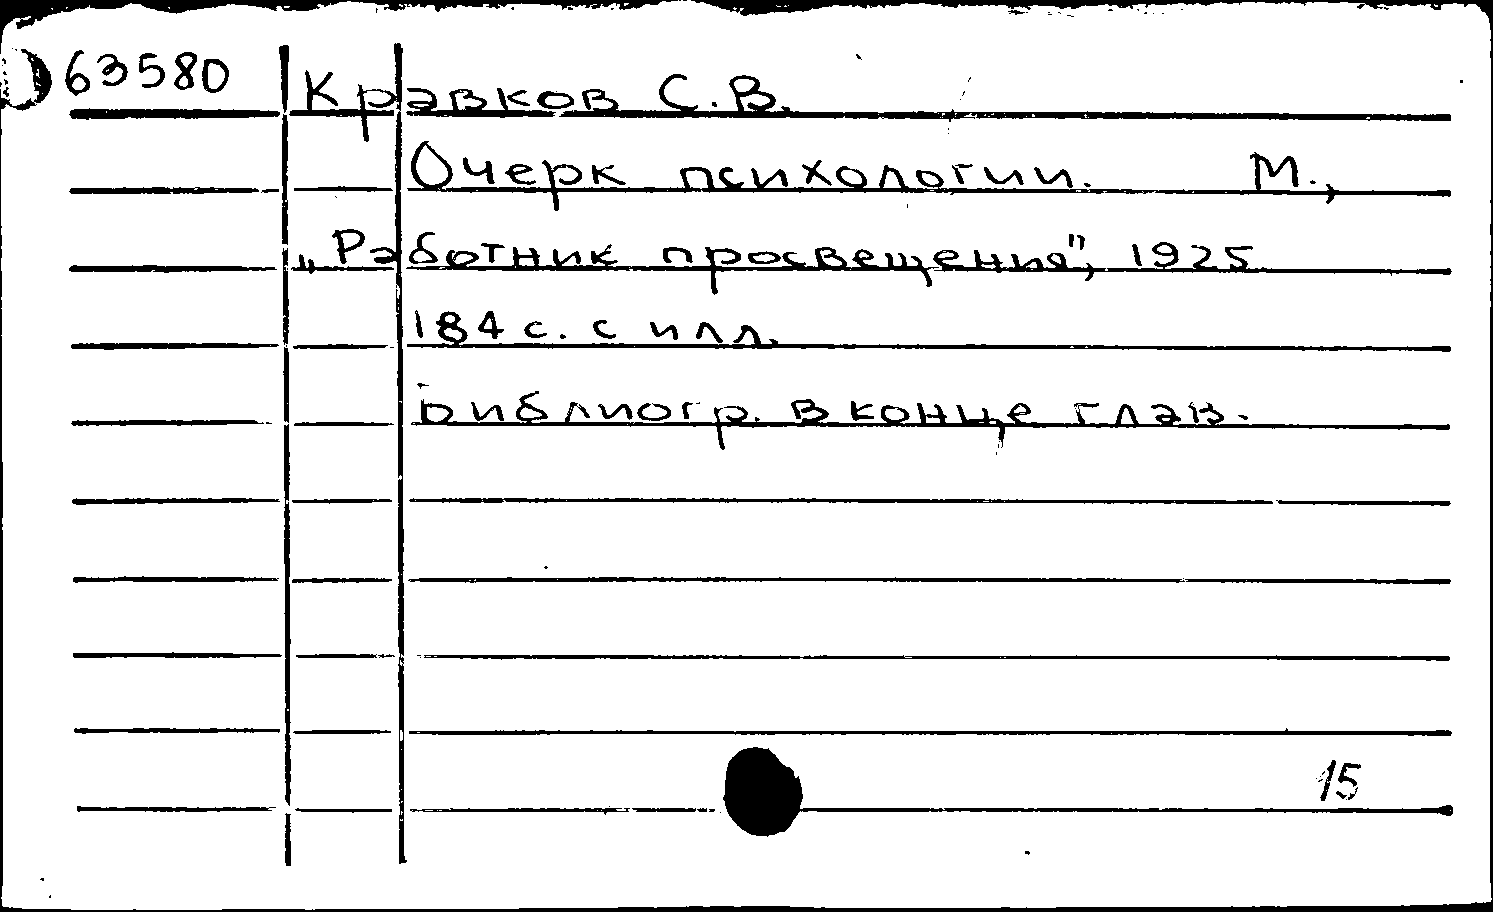 63580 Кравков С.В.
Очерк психологии. М.,
„Работник просвещения", 1925
184 с. с илл.
Библиогр. в конце глав.
15